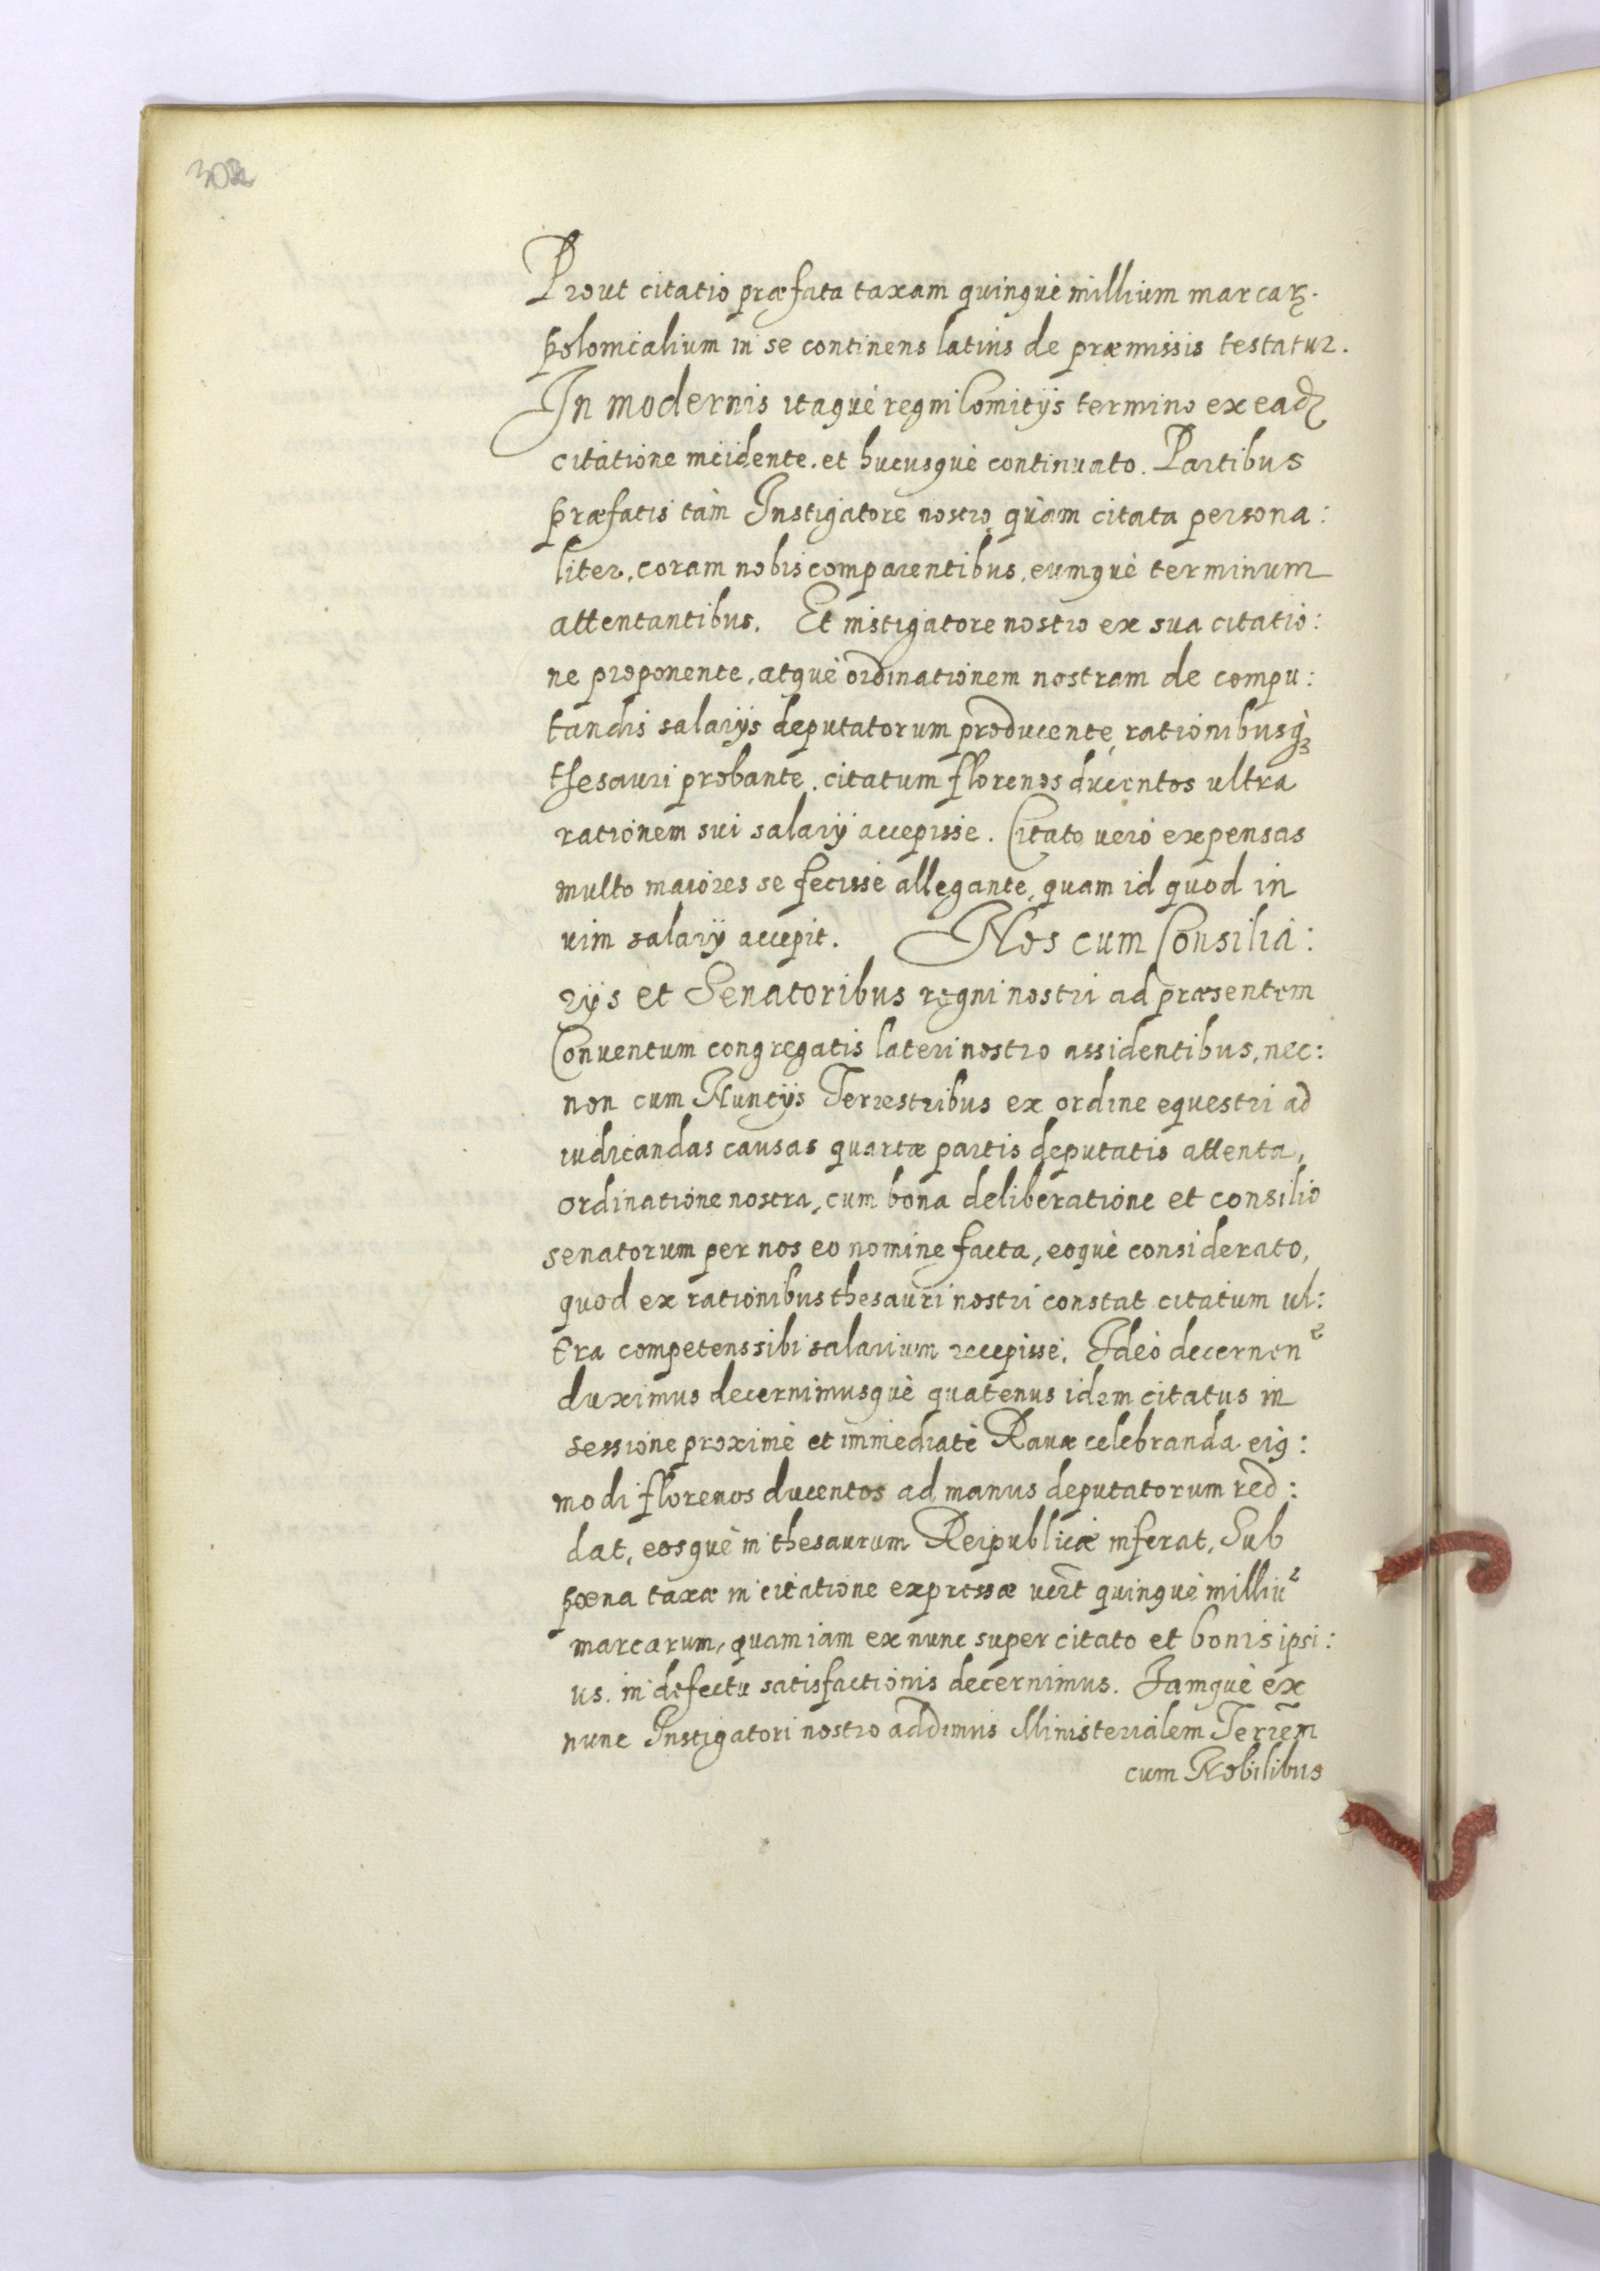 302
Prout citatio præfata taxam quinquè millium marcaꝝ.
polonicalium in se continens latiùs de præmissis testatur.
In modernis itaquè regni Comitijs termino ex eadꝫ
citatione incidente. et hucusquè continuato. Partibus
præfatis tàm Instigatore nostro, quàm citata persona:
liter, coram nobis comparentibus, eumquè terminum
attentantibus. Et instigatore nostro ex sua citatio:
ne proponente, atquè ordinationem nostram de compu:
tandis salarijs deputatorum producente, rationibusqꝫ
thesauri probante, citatum florenos ducentos ultra
rationem sui salarij accepisse. Citato verò expensas
multo maiores se fecisse allegante, quam id quod in
vim salarij accepit. Nos cum Consilia:
rijs et Senatoribus regni nostri ad præsentem
Conuentum congregatis lateri nostro assidentibus, nec:
non cum Nuncijs Terrestribus ex ordine equestri ad
iudicandas causas quartæ partis deputatis attenta,
ordinatione nostra, cum bona deliberatione et consilio
senatorum per nos eo nomine facta, eoquè considerato,
quod ex rationibus thesauri nostri constat citatum ul:
tra competens sibi salarium recepisse. Ideò decernen
duximus decernimusquè quatenus idem citatus in
sessione proximè et immediatè Rauæ celebranda eiꝰ:
modi florenos ducentos ad manus deputatorum red:
dat, eosquè in thesaurum Reipublicæ inferat, Sub
pœna taxæ in citatione expressæ vcꝫt quinquè milliu
marcarum, quam iam ex nunc super citato et bonis ipsi:
us. in defectu satisfactionis decernimus. Iamquè ex
nunc Instigatori nostro addimus Ministerialem Terrem̃
cum Nobilibus